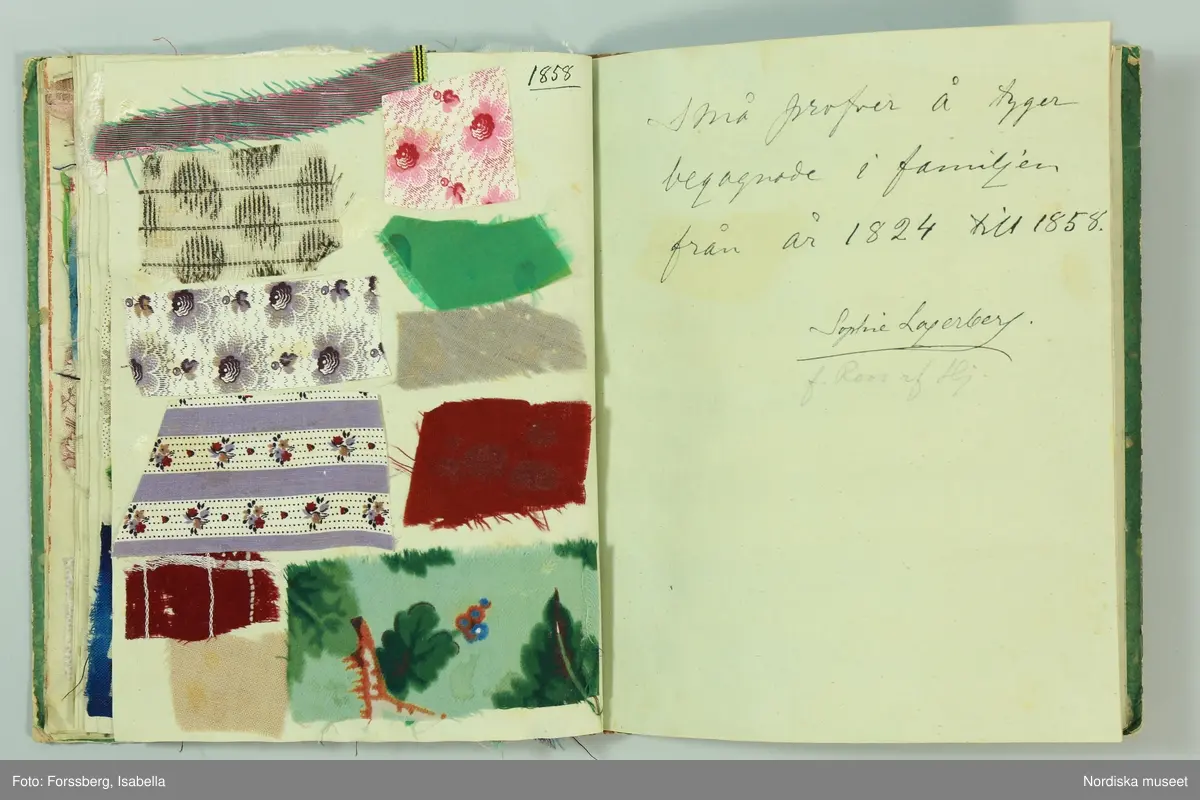 1858
Små profver å tyger
begagnade i familjen
från år 1824 till 1858.
Sophie Lagerberg.
f. Roos af Hj.
Foto: Forssberg, Isabella
Nordiska museet